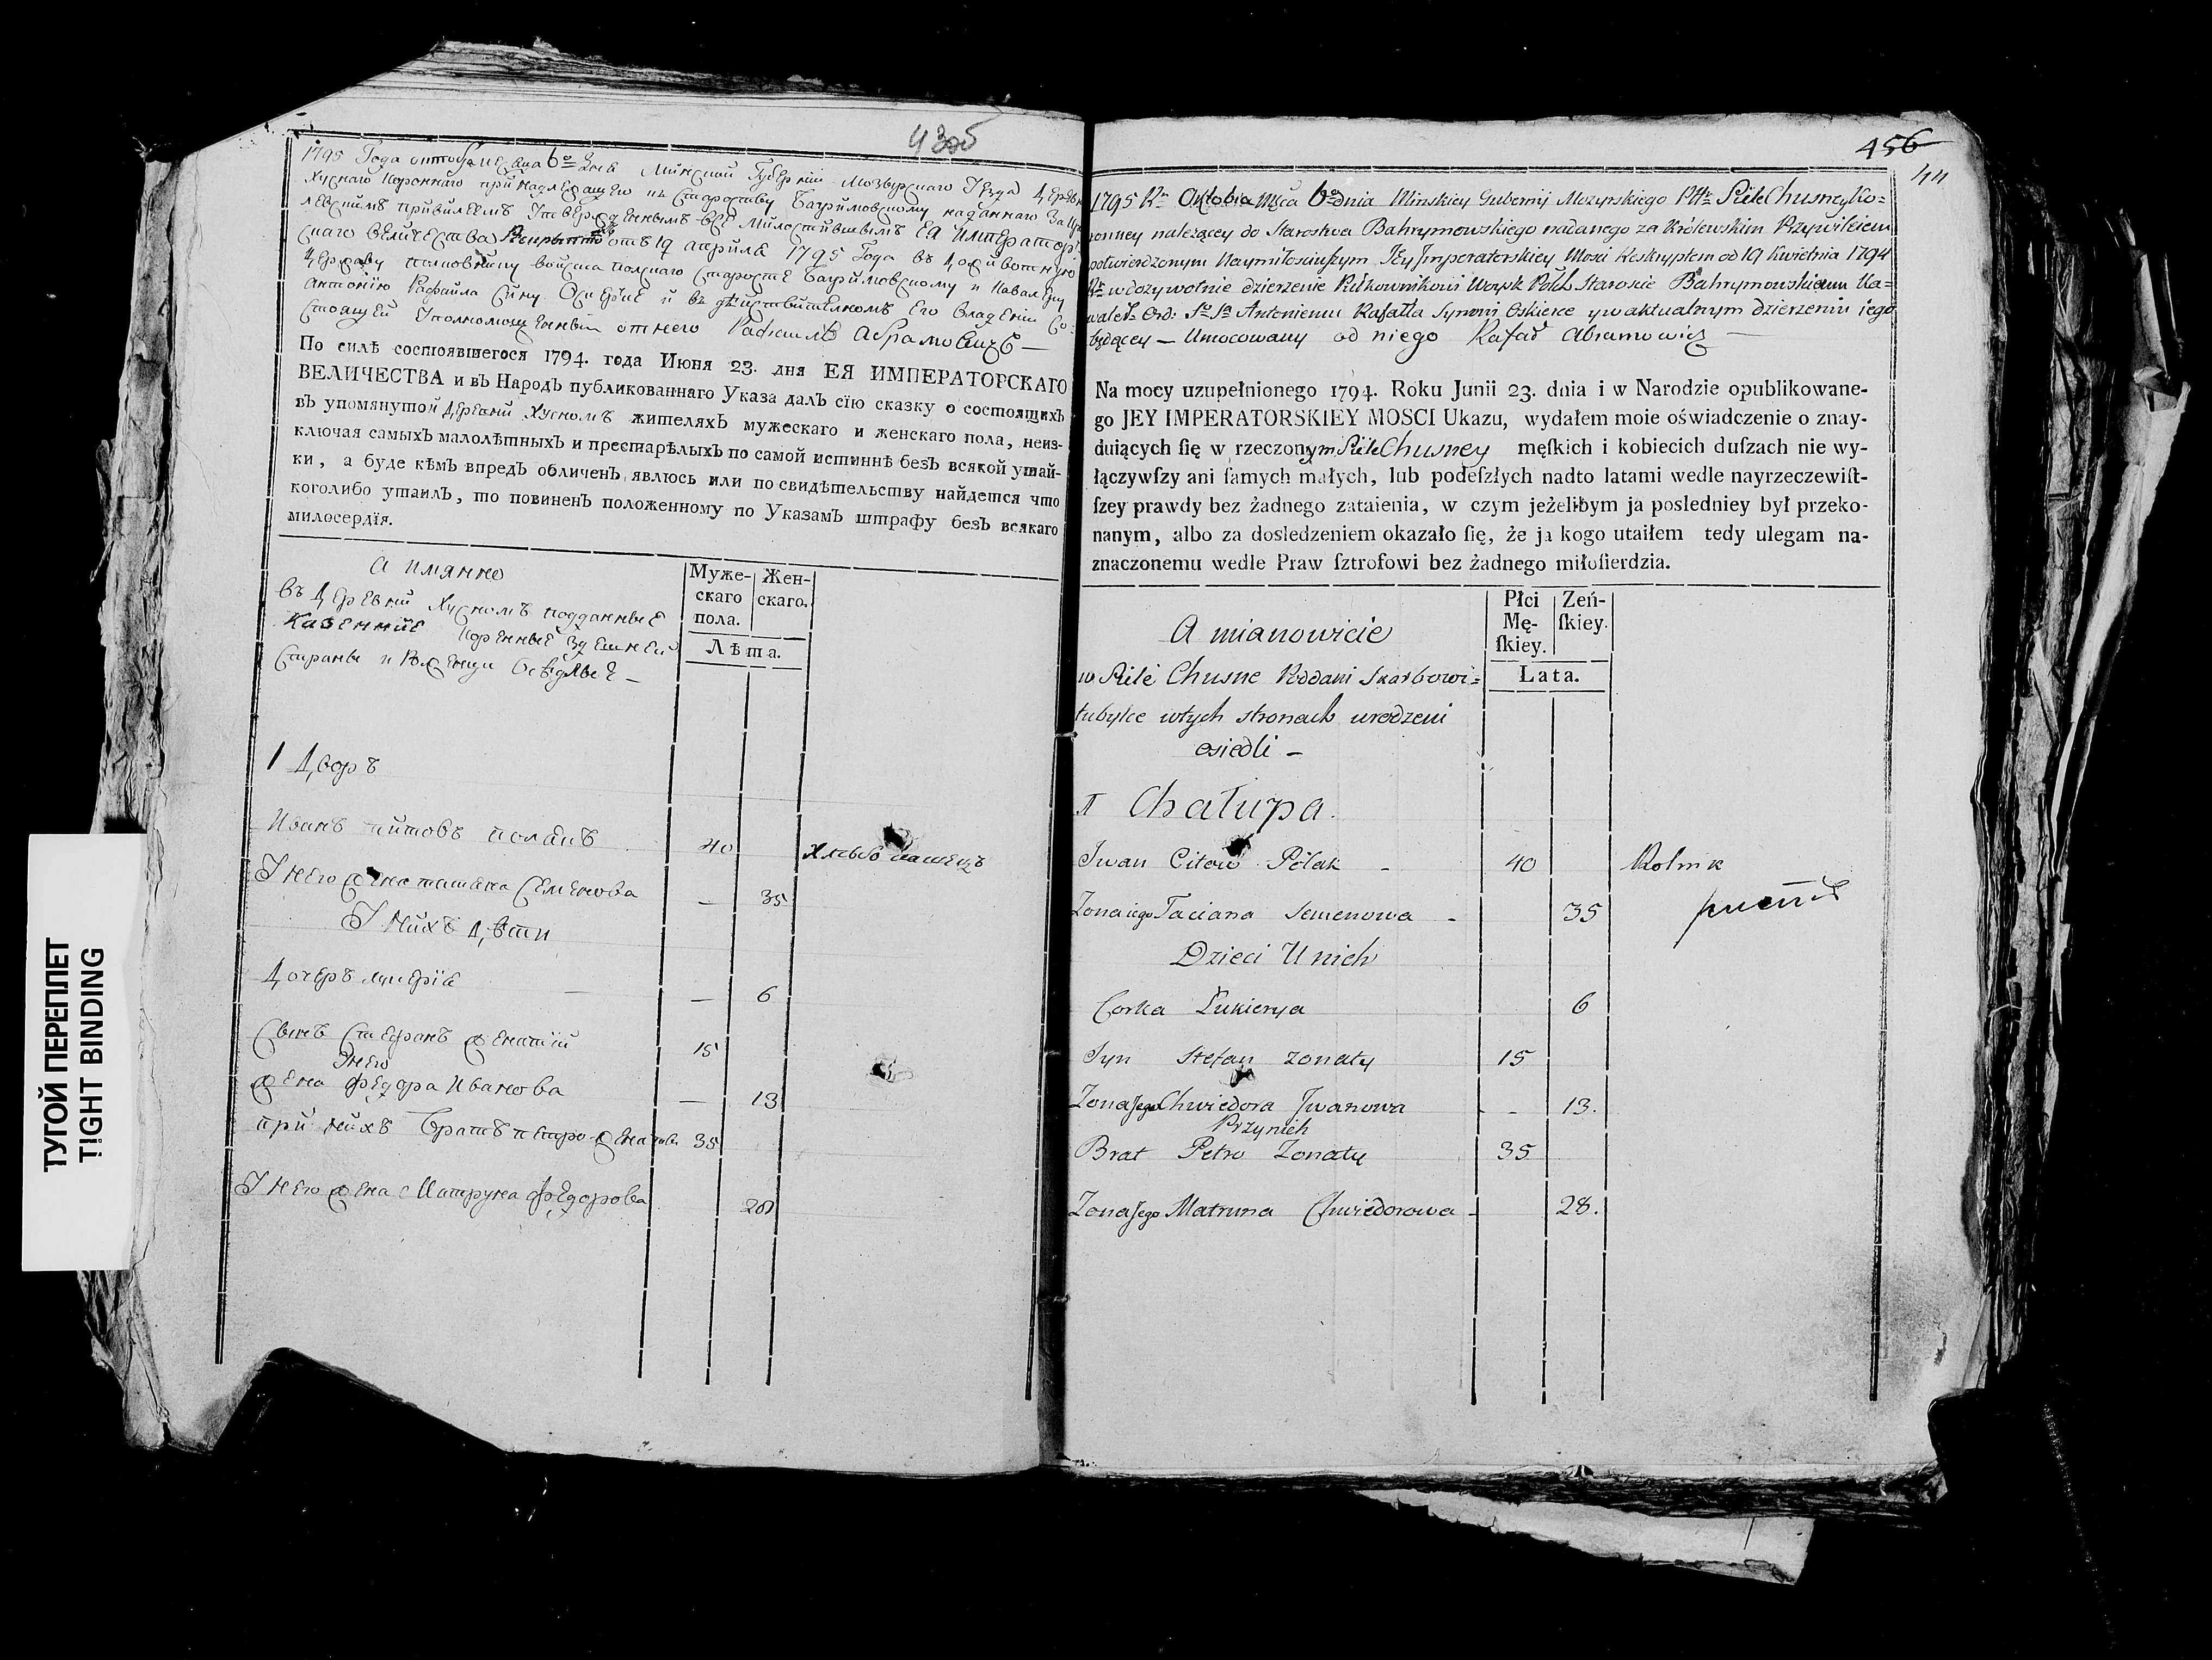 43об
1795 Года октобра месяца 6о дня Минской Губернiи Мозырского Уезда Деревни
Хусного коронного принадлежащего къ Староству Багримовскому наданного За Ко
левскимъ привилеемъ Утвержденнымъ Всемилостивѣшимъ ЕЯ Император
скаго Величества отъ 19 априля 1795 Года въ Доживотную
Державу полковнику войска полского Старосте Багримовскому и Кавалеру
Антонiю Рафаила Сину Оскерке и въ дѣиствителномъ Его Владенiи Со
стоящей Уполномоченный отнего Рафаилъ Абрамовичь —
По силѣ состоявшегося 1794. года Июня 23. дня ЕЯ ИМПЕРАТОРСКАГО
ВЕЛИЧЕСТВА и въ Народъ публикованнаго Указа далъ сїю сказку о состоящихъ
въ упомянутой деревни Хусномъ жителяхъ мужескаго и женскаго пола, неиз-
ключая самыхъ малолѣтныхъ и престарѣлыхъ по самой истиннѣ безъ всякой утай-
ки, а буде кѣмъ впредъ обличенъ явлюсь или по свидѣтельству найдется что
коголибо утаилъ, то повиненъ положенному по Указамъ штрафу безъ всякаго
милосердїя.
А имянно
Муже-скаго пола. Жен-скаго.
Лѣта.
въ Деревни Хусномъ подданные
Казенние коренные Здешней
Страны и Рожденци Осѣдлые —
1 Дворъ
Иванъ титовъ полакъ 40 Хлѣбопашецъ
У него жена татиана Семенова — 35
У нихъ Дѣти
Дочеръ лукерiя — — 6
Сынъ Стефанъ женатiй 15
У него
жена федора Иванова — 13
при нихъ Братъ петро женатый 35
У него жена Матруна федорова 28
ТУГОЙ ПЕРЕПЛЕТ
TIGHT BINDING
456
44
1795 Rn Oktobra Msca 6o dnia Minskiey Gubernij Mozyrskiego Siele Chusney Ko=
ronney należącey do Starostwa Bahrymowskiego nadanego za Królewskim Przywilejem
potwierdzonym Naymiłosciwszym Jey Jmperatorskiey Mosci Reskryptem od 19 Kwietnia 1794
w dożywotnie dzierżenie Półkownikowi Woysk Polch Staroscie Bahrymowskiemu Ka=
waler Ord: Sgo Antoniemu Rafałła Synowi Oskierce y w aktualnym dzierżeniu iego
będącey — Umocowany od niego Rafał Abramowicz —
Na mocy uzupełnionego 1794. Roku Junii 23. dnia i w Narodzie opublikowane-
go JEY IMPERATORSKIEY MOSCI Ukazu, wydałem moie oświadczenie o znay-
duiących ſię w rzeczonym Siele Chusney męſkich i kobiecich duſzach nie wy-
łączywſzy ani ſamych małych, lub podeſzłych nadto latami wedle nayrzeczewiſt-
ſzey prawdy bez żadnego zataienia, w czym jeżelibym ja posledniey był przeko-
nanym, albo za dosledzeniem okazało ſię, że ja kogo utaiłem tedy ulegam na-
znaczonemu wedle Praw ſztrofowi bez żadnego miłoſierdzia.
A mianowicie
Płci Mę-ſkiey. Żeń-ſkiey.
Lata.
w Siele Chusne Poddani Skarbowi=
tubylce w tych stronach urodzeni
osiedli —
1 Chałupa.
Jwan Citow Polak - 40 Rolnik
Zona iego Taciana Semenowa - 35
Dzieci U nich
Corka Łukierya 6
Syn Stefan żonaty 15
Zona Jego Chwiedora Jwanowa - - 13.
Przy nich
Brat Petro Zonaty 35
Zona Jego Matruna Chwiedorowa - 28.